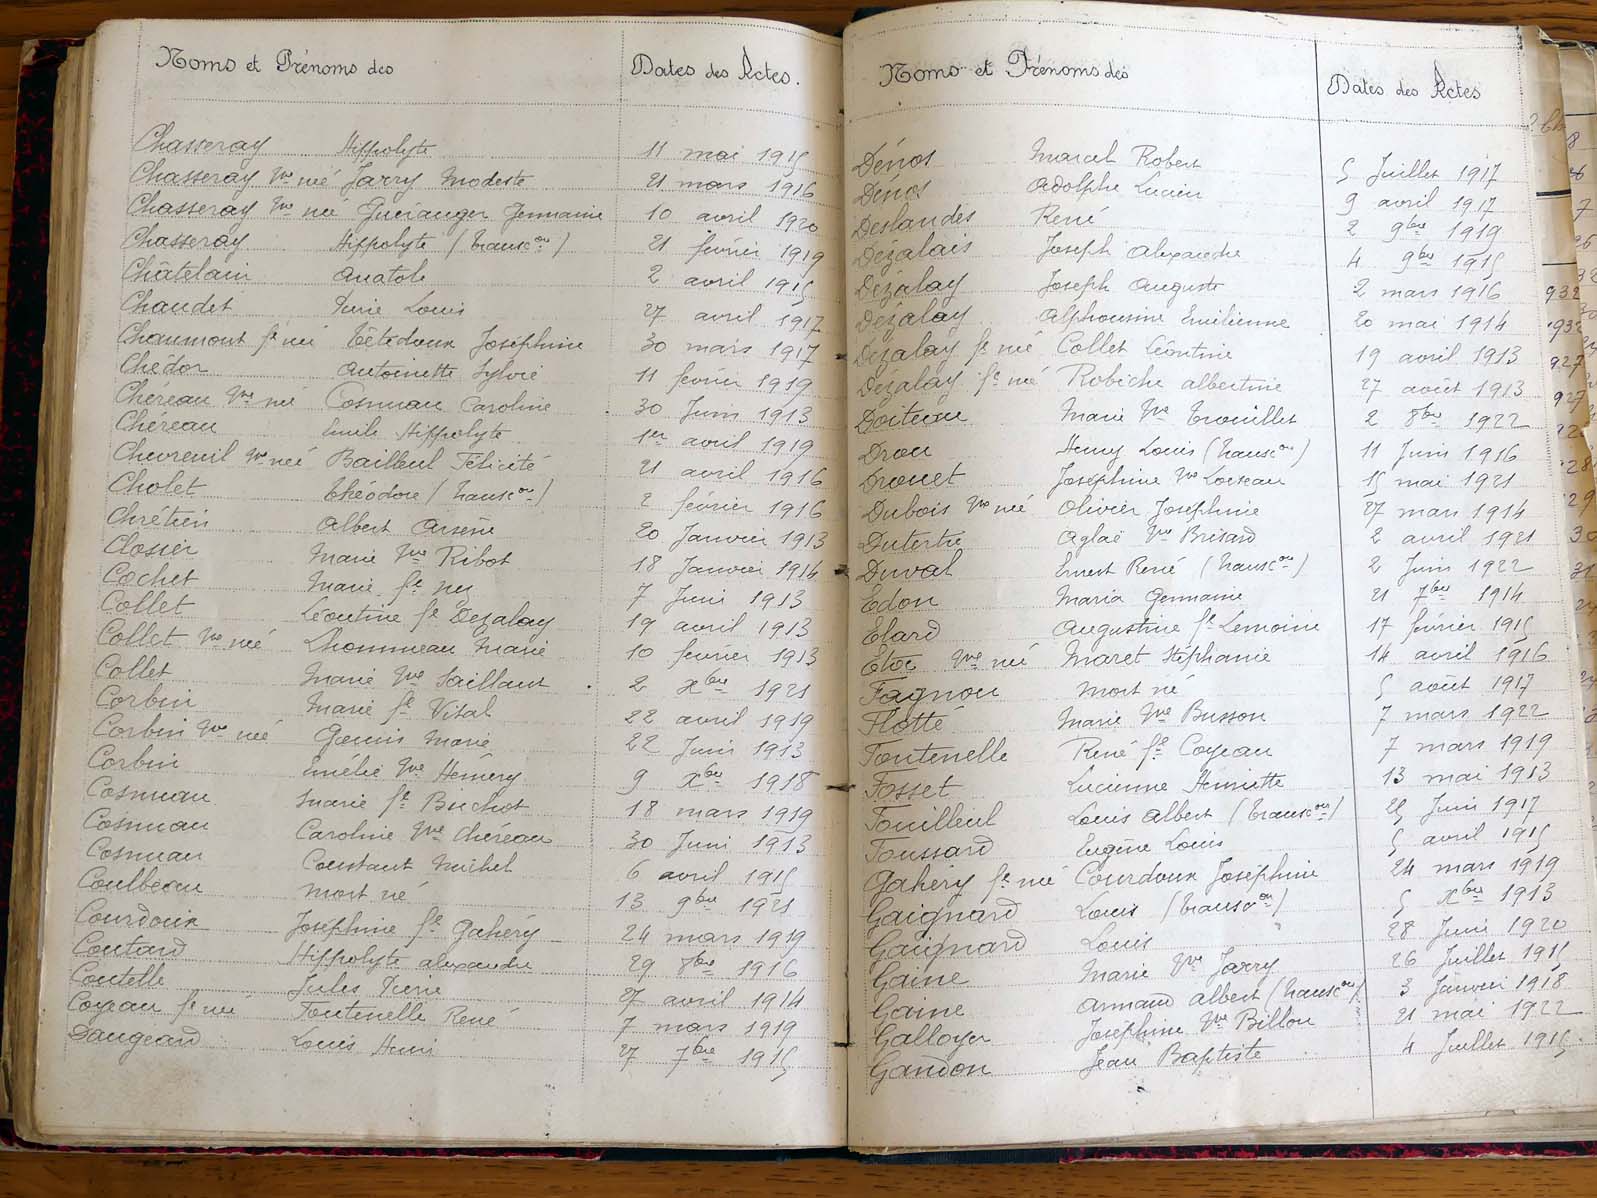 Noms et Prénoms des Dates des Actes.
Chasseray Hippolyte 11 mai 1915
Chasseray Vve née Jarry Modeste 21 mars 1916
Chasseray Vve née Guéranger Germaine 10 avril 1920
Chasseray Hippolyte (transcon) 21 février 1919
Châtelain Anatole 2 avril 1915
Chaudet Pierre Louis 27 avril 1917
Chaumont fe née Têtedoux Joséphine 30 mars 1917
Chédor Antoinette Sylvie 11 février 1919
Chéreau Vve née Cosnuau Caroline 30 Juin 1913
Chéreau Emile Hippolyte 1er avril 1919
Chevreuil Vve née Bailleul Félicité 21 avril 1916
Cholet Théodore (transcon) 2 février 1916
Chrétien Albert Arsène 20 Janvier 1913
Closier Marie Vve Ribot 18 Janvier 1914
Cochet Marie fe 7 Juin 1913
Collet Léontine fe Dezalay 19 avril 1913
Collet Vve née Lhommeau Marie 10 février 1913
Collet Marie Vve Saillant 2 Xbre 1921
Corbin Marie fe Vital 22 avril 1919
Corbin Vve née Marie 22 Juin 1913
Corbin Emélie Vve Hémery 9 Xbre 1918
Cosnuau Marie fe Buchot 18 mars 1919
Cosnuau Caroline Vve Chéreau 30 Juin 1913
Cosnuau Constant Michel 6 avril 1915
Coulbeau mort né 13 9bre 1921
Courdoux Joséphine fe Gahéry 24 mars 1919
Coutard Hippolyte alexandre 29 8bre 1916
Coutelle Jules Pierre 27 avril 1914
Coyeau fe née Fontenelle René 7 mars 1919
Daugeard Louis Henri 27 7bre 1915
Noms et Prénoms des Dates des Actes
Denos Marcel Robert 5 Juillet 1917
Denos Adolphe Lucien 9 avril 1917
Deslandes René 2 9bre 1919
Dézalais Joseph Alexandre 4 9bre 1915
Dézalay Joseph Auguste 2 mars 1916
Dézalay Alphonsine Emilienne 20 mai 1914
Dezalay fe née Collet Léontine 19 avril 1913
Dézalay fe née Robiche albertine 27 août 1913
Doiteau Marie Vve Trouillet 2 8bre 1922
Drou Henry Louis (transcon) 11 Juin 1916
Drouet Joséphine Vve Loiseau 15 mai 1921
Dubois Vve née Olivier Joséphine 27 mars 1914
Dutertre Aglaé Vve Brisard 2 avril 1921
Duval Ernest René (transcon) 2 Juin 1922
Edon Maria Germaine 21 7bre 1914
Elard Augustine fe Lemoine 17 février 1915
Etoc Vve née Maret Stéphanie 14 avril 1916
Fagnou mort né 5 août 1917
Flotté Marie Vve Busson 7 mars 1922
Fontenelle René fe Coyeau 7 mars 1919
Fosset Lucienne Henriette 13 mai 1913
Fouilleul Louis Albert (transcon) 25 Juin 1917
Foussard Eugène Louis 5 avril 1915
Gahéry fe née Courdoux Joséphine 24 mars 1919
Gaignard Louis (transcon) 5 Xbre 1913
Gaignard Louis 28 Juin 1920
Gaine Marie Vve Jarry 26 Juillet 1915
Gaine Armand Albert (transcon) 3 Janvier 1918
Galloyer Joséphine Vve Billon 21 mai 1922
Gandon Jean Baptiste 4 Juillet 1915